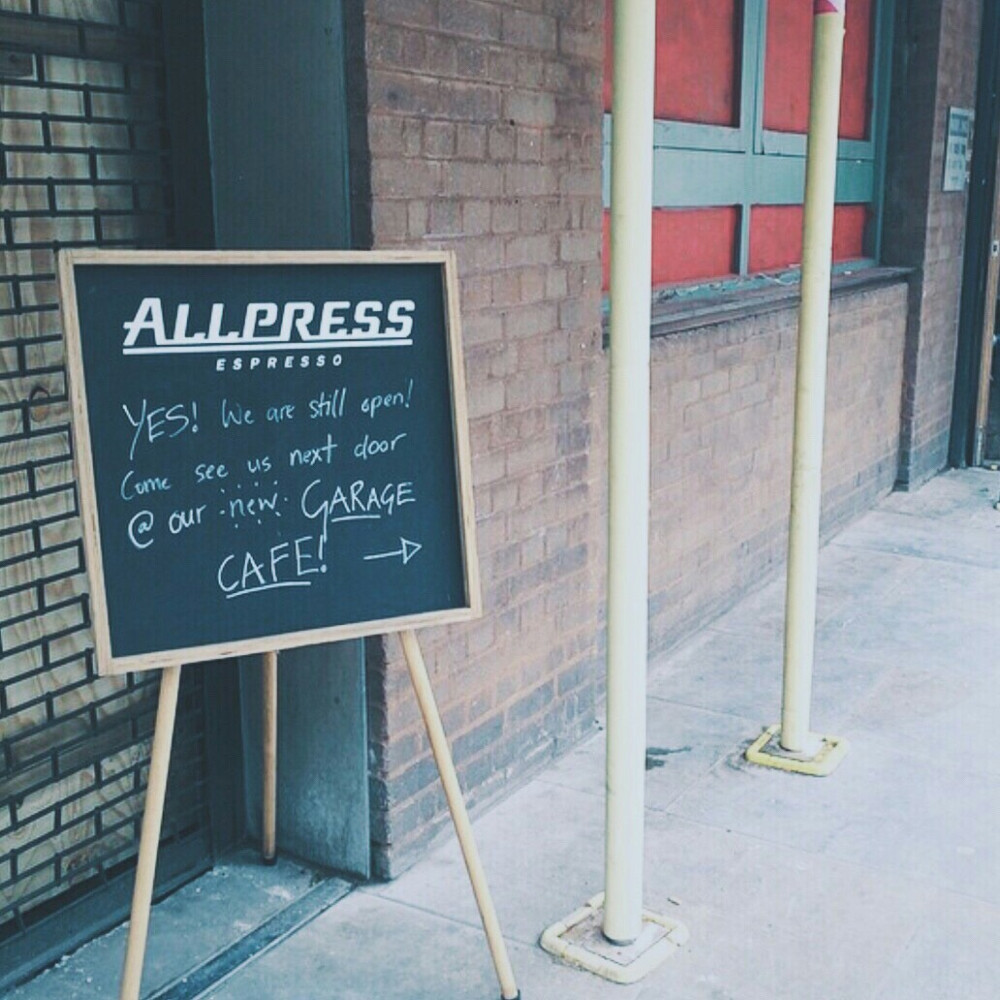 ALLPRESS
ESPRESSO
YES! We are still open!
Come see us next door
@ our new GARAGE
CAFE! →